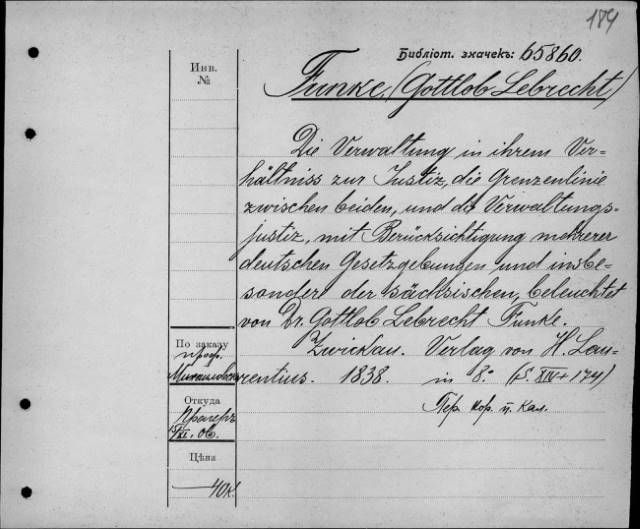 184
Библіот. значекъ: 65860.
Инв.
№
Funke, (Gottlob Lebrecht)
Die Verwaltung in ihrem Ver=
hältniss zur Justiz, die Grenzenlinie
zwischen beiden, und die Verwaltungs-
justiz, mit Berücksichtigung mehrerer
deutschen Gesetzgebungen und insbe-
sondere der sächsischen, beleuchtet
von Dr. Gottlob Lebrecht Funke.
Zwickau. Verlag von H. Lau-
rentius. 1838. in 8º (S. XIV + 174)
Пер. кор. п. кал.
По заказу
проф.
Откуда
Прагеръ
Цѣна
40к.